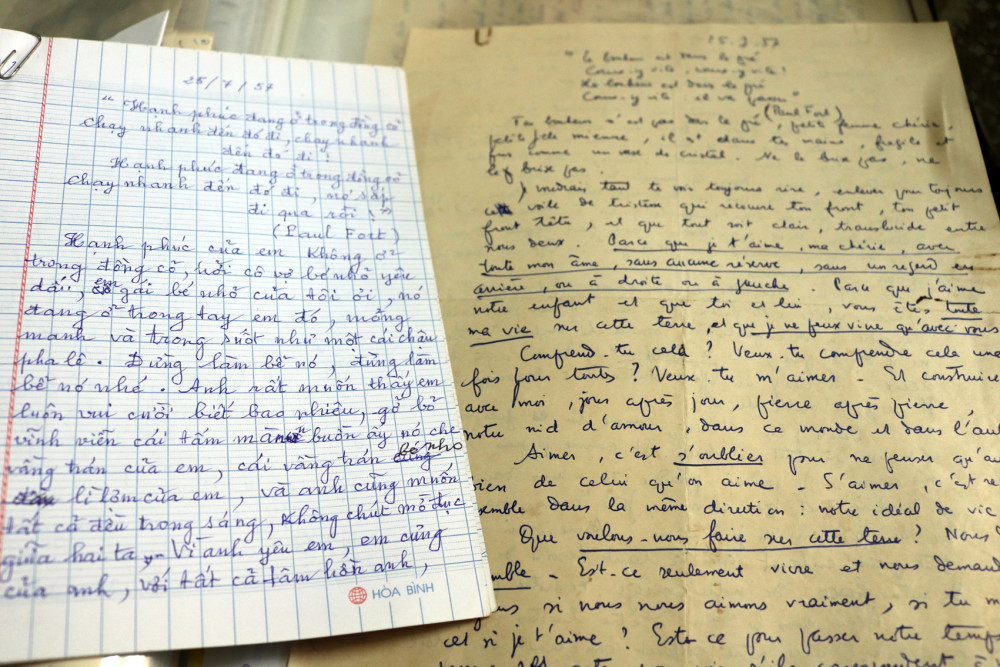 25/7/57
"Hạnh phúc đang ở trong đồng cỏ
Chạy nhanh đến đó đi, chạy nhanh
đến đó đi!
Hạnh phúc đang ở trong đồng cỏ
Chạy nhanh đến đó đi, nó sắp
đi qua rồi"
(Paul Fort)
Hạnh phúc của em không ở
trong đồng cỏ, hỡi cô vợ bé nhỏ yêu
dấu, em gái bé nhỏ của tôi ơi, nó
đang ở trong tay em đó, mỏng
manh và trong suốt như một cái chậu
pha lê. Đừng làm bể nó, đừng làm
bể nó nhé. Anh rất muốn thấy em
luôn vui cười biết bao nhiêu, gỡ bỏ
vĩnh viễn cái tấm màn buồn ấy nó che
vầng trán của em, cái vầng trán bé nhỏ
lì lợm của em, và anh cũng muốn
tất cả đều trong sáng, không chút mờ đục
giữa hai ta, Vì anh yêu em, em cưng
của anh, với tất cả tâm hồn anh,
HÒA BÌNH
25.7.57
"Le bonheur est dans le pré
Cours-y vite, cours-y vite!
Le bonheur est dans le pré
Cours-y vite il va passer"
(Paul Fort)
Ton bonheur n'est pas dans le pré, petite femme chérie,
petite fille mienne, il est dans tes mains, fragile et
pur comme un vase de cristal. Ne le brise pas, ne
le brise pas.
Je voudrais tant te voir toujours rire, enlever pour toujours
ce voile de tristesse qui recouvre ton front, ton petit
front têtu, et que tout soit clair, translucide entre
nous deux. Parce que je t'aime, ma chérie, avec
toute mon âme, sans aucune réserve, sans un regard en
arrière, ou à droite ou à gauche. Parce que j'aime
notre enfant et que toi et lui, vous êtes toute
ma vie sur cette terre, et que je ne peux vivre qu'avec vous
Comprend-tu cela? Veux-tu comprendre cela une
fois pour toutes? Veux-tu m'aimer. Et construire
avec moi, jour après jour, pierre après pierre,
notre nid d'amour, dans ce monde et dans l'aut
Aimer, c'est s'oublier pour ne penser qu'au
bien de celui qu'on aime. S'aimer, c'est re
semble dans la même direction: notre idéal de vie
Que voulons-nous faire sur cette terre? Nous
emble. Est-ce seulement vivre et nous demand
si nous nous aimons vraiment, si tu m
et si je t'aime? Est-ce pour passer notre temps